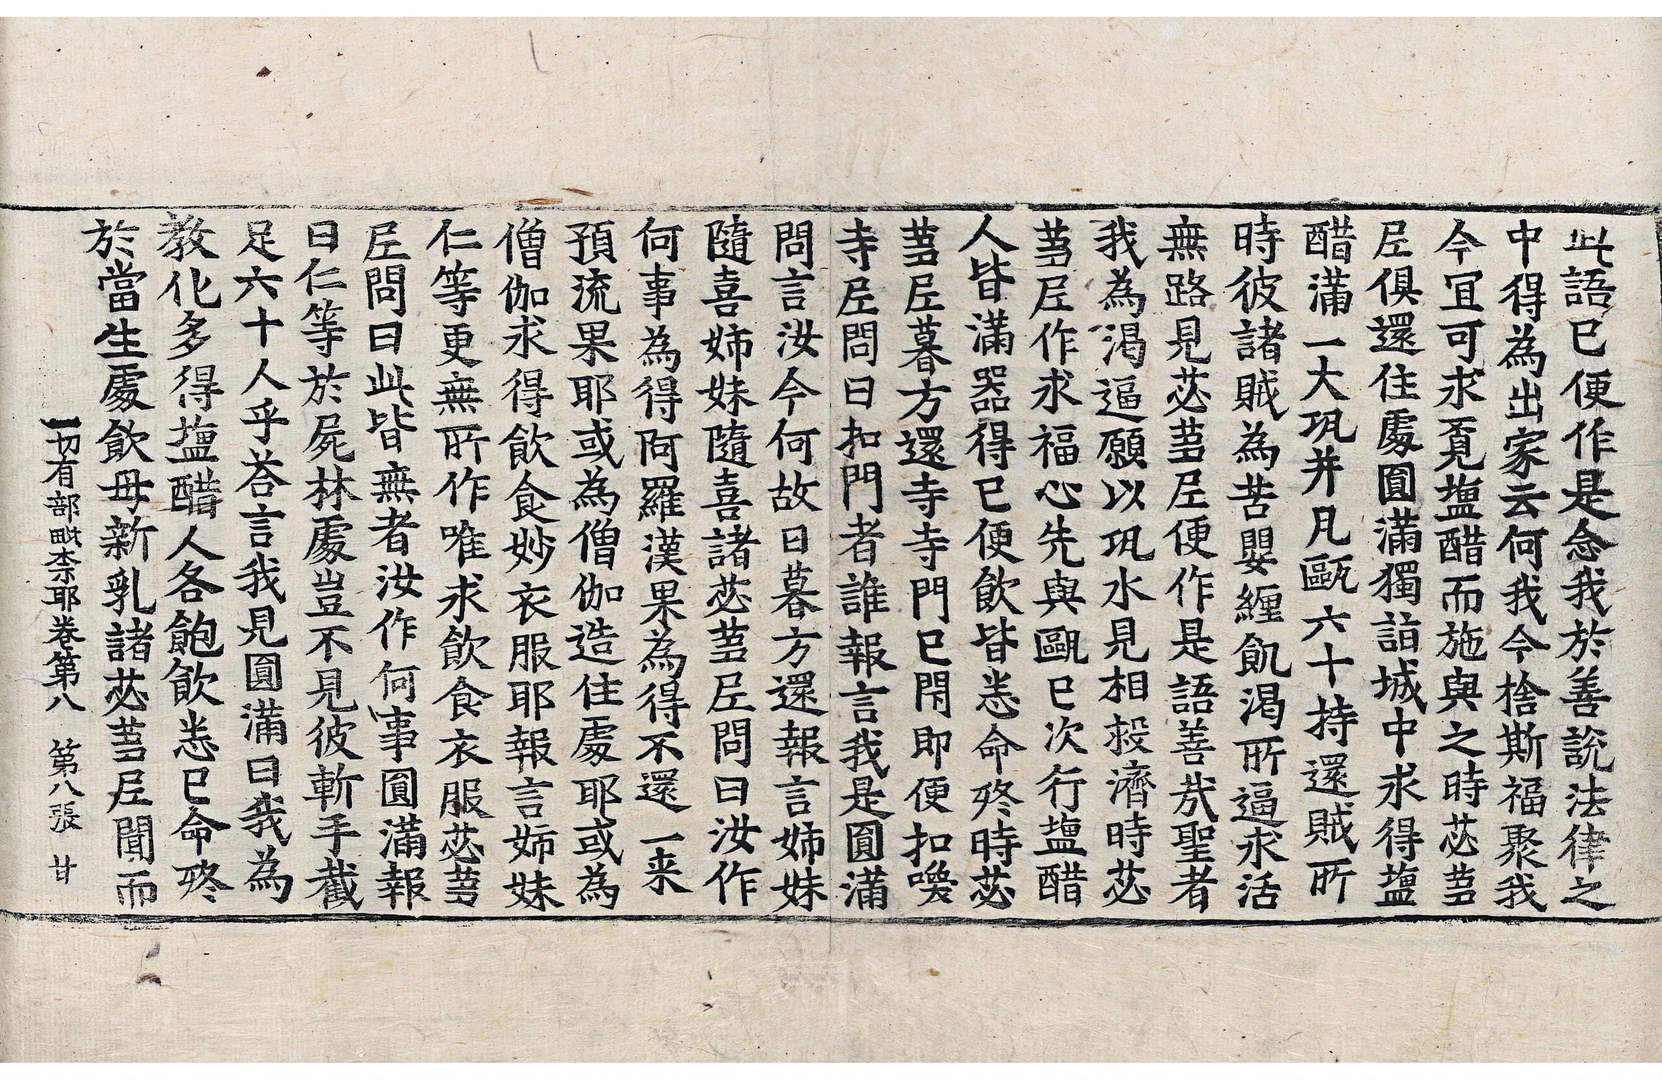 此語已便作是念我於善說法律之
中得為出家云何我今捨斯福聚我
今冝可求覓塩醋而施與之時苾蒭
尼俱還住處圓滿獨詣城中求得塩
醋滿一大瓨并凡甌六十持還賊所
時彼諸賊為苦嬰纏飢渴所逼求活
無路見苾蒭尼便作是語善㢤聖者
我為渴逼願以瓨水見相救濟時苾
蒭尼作求福心先與甌已次行塩醋
人皆滿器得已便飲皆悉命終時苾
蒭尼暮方還寺寺門已閇即便扣喚
寺尼問曰扣門者誰報言我是圓滿
問言汝今何故日暮方還報言姉妹
隨喜姉妹隨喜諸苾蒭尼問曰汝作
何事為得阿羅漢果為得不還一来
預流果耶或為僧伽造住處耶或為
僧伽求得飲食妙衣服耶報言姉妹
仁等更無所作唯求飲食衣服苾蒭
尼問曰此皆無者汝作何事圓滿報
曰仁等於屍林處豈不見彼斬手截
足六十人乎荅言我見圓滿曰我為
教化多得塩醋人各飽飲悉已命終
於當生處飲母新乳諸苾蒭尼聞而
一切有部毗柰耶卷第八　第八張　甘